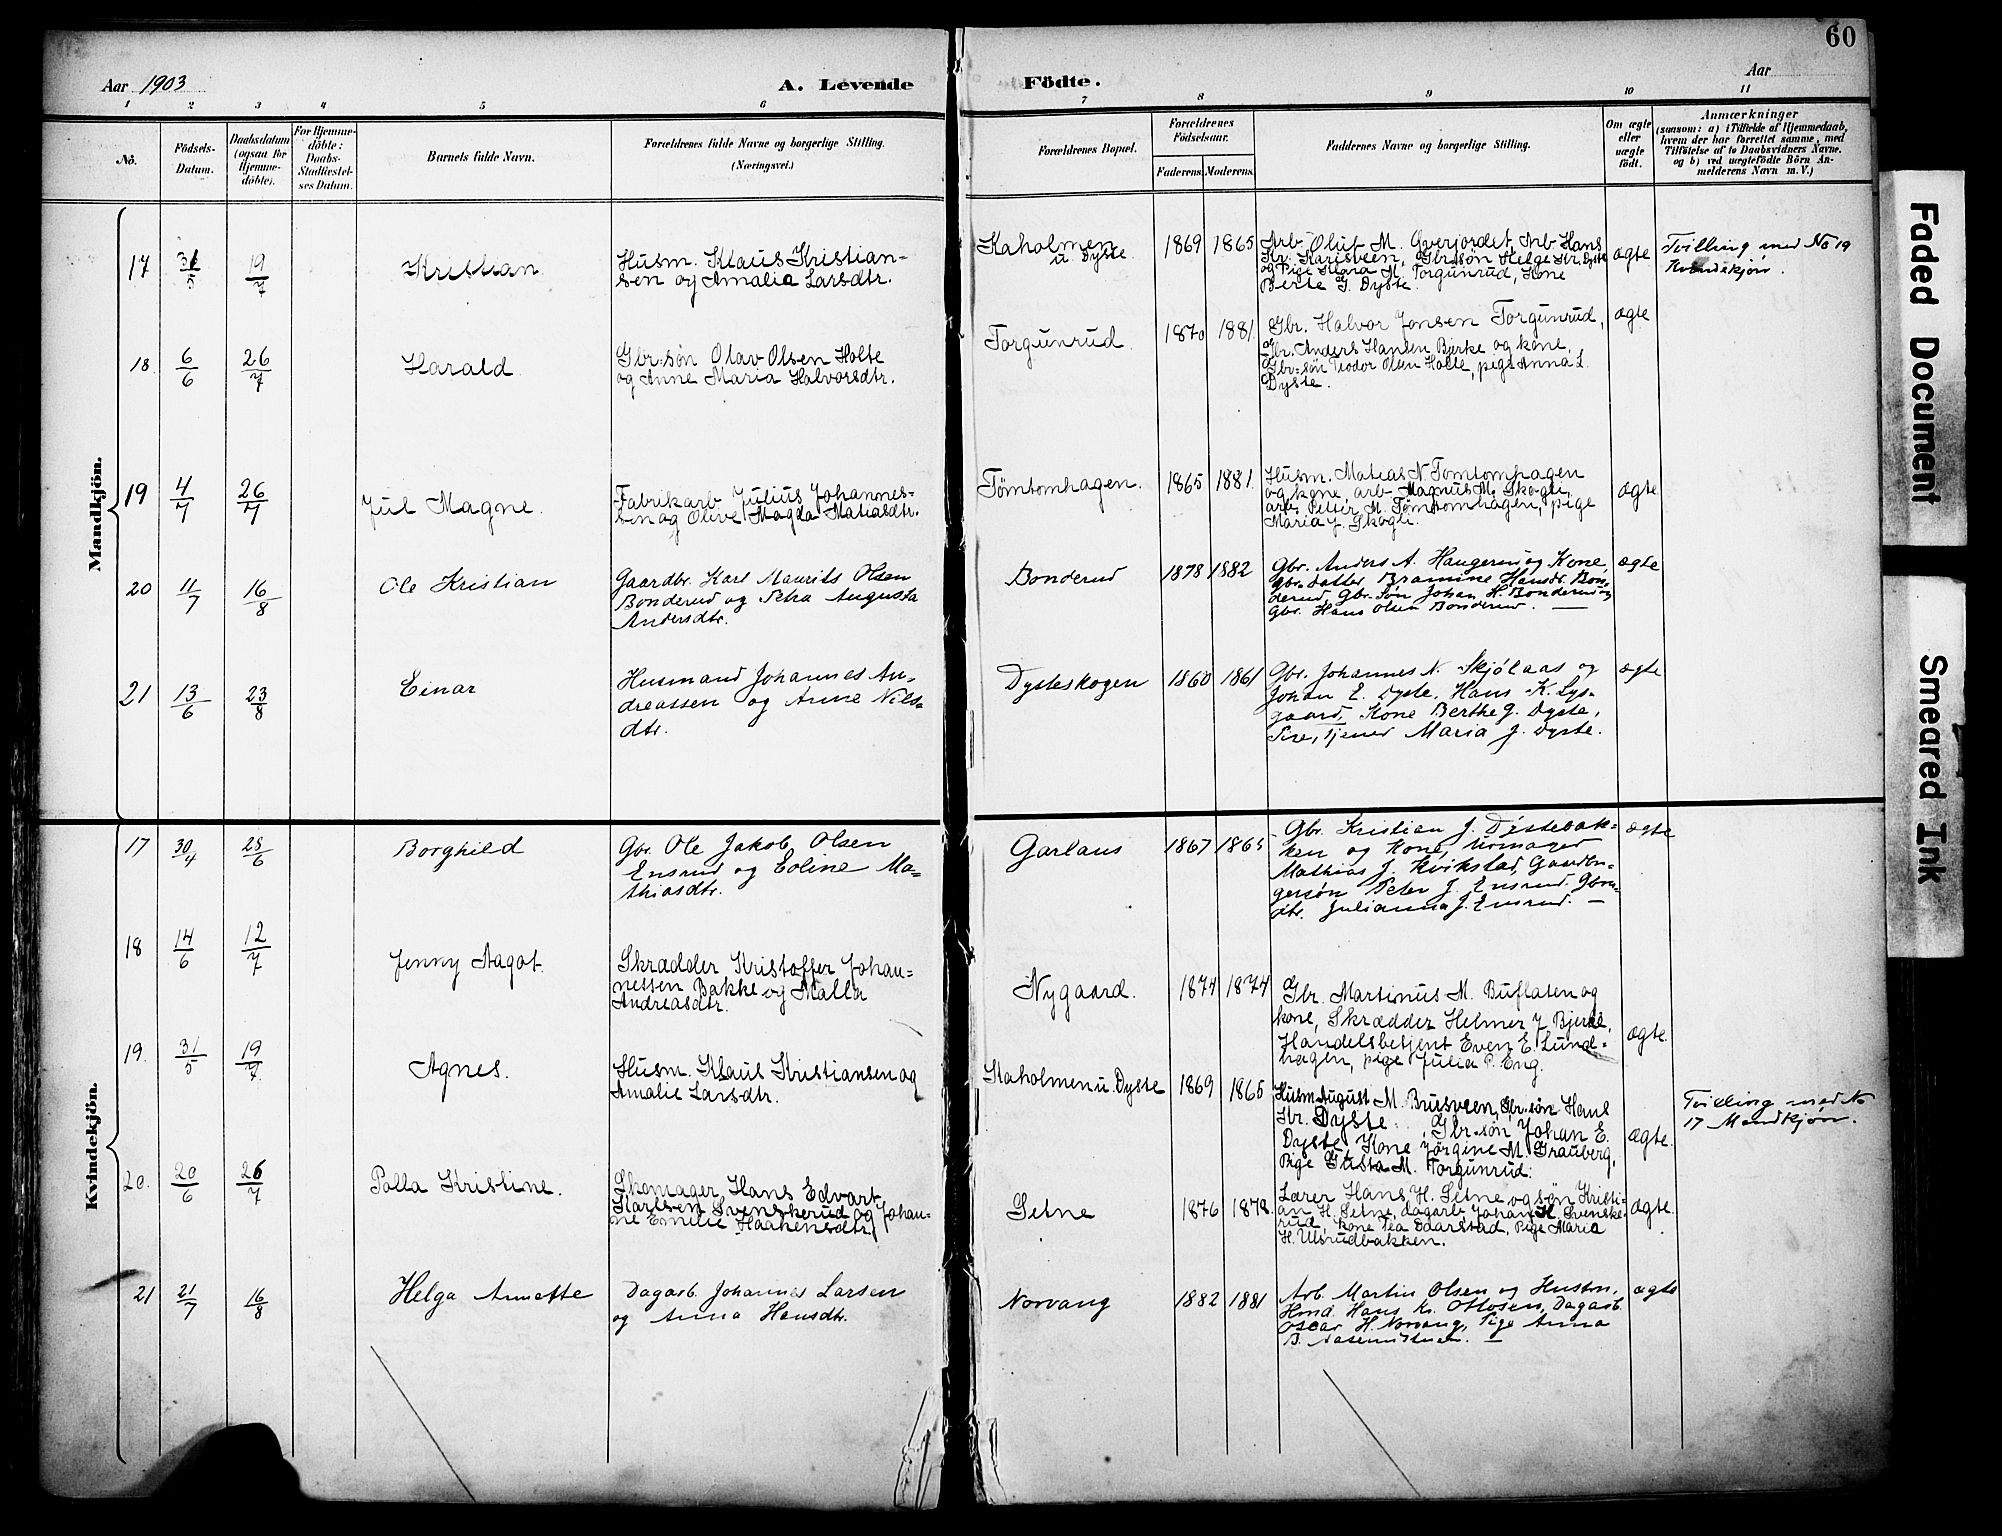 60
Aar 1903
A. Levende
Födte.
Aar
1 2 3 4 5 6 7 8 9 10 11
No.
Födsels-
Datum.
Daabsdatum
(ogsaa for
Hjemme-
döbte).
For Hjemme-
döbte:
Daabs-
Stadfæstel-
ses Datum.
Barnets fulde Navn.
Forældrenes fulde Navne og borgerlige Stilling.
(Næringsvei.)
Forældrenes Bopæl.
Forældrenes
Födselsaar.
Faderens. Moderens.
Faddernes Navne og borgerlige Stilling.
Om ægte
eller
uægte
födt.
Anmærkninger
(saasom: a) i Tilfælde af Hjemmedaab,
hvem der har forrettet samme, med
Tilföielse af to Daabsvidners Navne,
og b) ved uægtefödte Börn An-
melderens Navn m. V.)
Mandkjön.
17 31/5 19/7 Kristian
Husm. Klaus Kristian-
sen og Amalia Larsdtr.
Kaholmen
u. Dyste
1869 1865
Arb. Oluf M. Øverjordet, Arb Hans
Kr. Karisveen, Gbrsøn Helge Kr. Dyste
og Pige Klara M. Torgunrud, Kone
Berte G. Dyste.
ægte
Tvilling med No 19
Kvindekjøn.
18 6/6 26/7 Harald
Gbr.søn Olav Olsen Holte
og Anne Maria Halvorsdtr.
Torgunrud.
1870 1881.
Gbr. Halvor Jonsen Torgunrud,
Gbr. Anders Hansen Bjerke og kone,
Gbr-søn Teodor Olsen Holte, pige Anna L.
Dyste.
ægte
19 4/7 26/7 Jul Magne.
Fabrikarb. Julius Johannes-
sen og Olive Magda Matiasdtr.
Tømtomhagen.
1865 1881.
Husm. Matias N. Tomtomhagen
og kone, arb. Magnus M. Skogli,
arb. Petter M. Tømtomhagen, pige
Maria J. Skogli.
ægte
20 11/7 16/8 Ole Kristian
Gaardbr. Karl Maurits Olsen
Bonderud og Petra Augusta
Andersdtr.
Bonderud
1878 1882
Gbr. Anders A. Haugerud og Kone,
gbr. datter Bramine Hansdr. Bon-
derud, Gbr. Søn Johan H. Bonderud og
Gbr. Hans Olsen Bonderud. —
ægte
21 13/6 23/8 Einar
Husmand Johannes An-
dreassen og Anne Nils-
dtr.
Dysteskogen
1860 1861
Gbr. Johannes N. Skjølaas og
Johan E. Dyste, Hans K. Lys-
gaard, Kone Berthe J. Dyste,
Maria J. Dyste.
ægte
Kvindekjön.
17 30/4 28/6 Borghild
Gbr. Ole Jakob Olsen
Ensrud og Eoline Ma-
thiasdtr.
Garlaus
1867 1865
Gbr. Kristian J. Dystebak-
ken og Kone,
Mathias J. Kvikstad, Gaardbru-
gersøn Peter J. Ensrud. Gbru-
dtr. Julianna J. Ensrud. —
ægte
18 14/6 12/7 Jenny Aagot.
Skrædder Kristoffer Johan-
nessen Bakke og Malla
Andreasdtr.
Nygaard.
1874 1874
Gbr. Martinus M. Buflaten og
kone, Skrædder Helmer J. Bjerke,
Handelsbetjent Even E. Lund-
hagen, pige Julia P. Eng.
ægte.
19. 31/5 19/7. Agnes.
Husm. Klaus Kristiansen og
Amalie Larsdtr.
Kaholmen u. Dyste
1869 1865
Husm August M. Brusveen, Gbr.søn Hans
Kr. Dyste. Gbr-søn Johan E.
Dyste, Kone Jørgine M. Grauberg,
Pige Gusta M. Torgunrud.
ægte.
Tvilling med No
17 Mandkjøn.
20. 20/6 26/7 Palla Kristine.
Skomager Hans Edvart
Karlsen Svenskerud og Johan-
ne Emilie Haakensdtr.
Setne
1876 1878.
Lærer Hans H. Setne og søn Kristi-
an H. Setne, dagarb. Johan H. Svenske-
rud, Kone Tea Daarstad, Pige Maria
H. Ulsrudbakken.
ægte.
21 21/7 16/8 Helga Annette
Dagarb. Johannes Larsen
og Anna Hansdtr.
Norvang
1882 1881
Arb. Martin Olsen og Hustru,
Hmd. Hans Kr. Ottosen, Dagarb.
Oscar H. Norvang, Pige Anna
B.
ægte
Faded Document
Smeared Ink